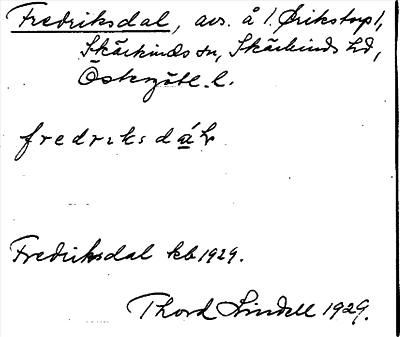 Fredriksdal, avs. å 1 Örikstorp 1,
Skärkinds sn, Skärkinds hd,
Östergötl. l.
fredriksdáL
Fredriksdal kb 1929.
Thord Lindell 1929.